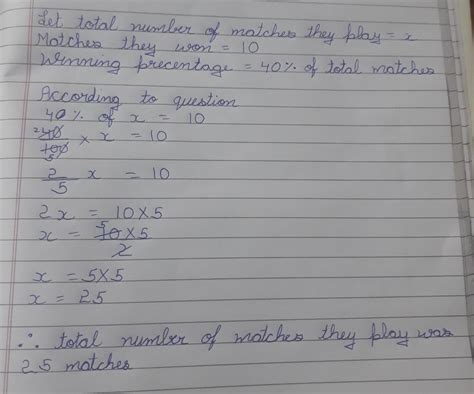 Let total number of matches they play = x
Matches they won = 10
Winning precentage = 40% of total matches
According to question
40% of x = 10
2 40/100 5 × x = 10
2/5 x = 10
2x = 10×5
x = 5 10×5/2
x = 5×5
x = 25
∴ total number of matches they play was
25 matches